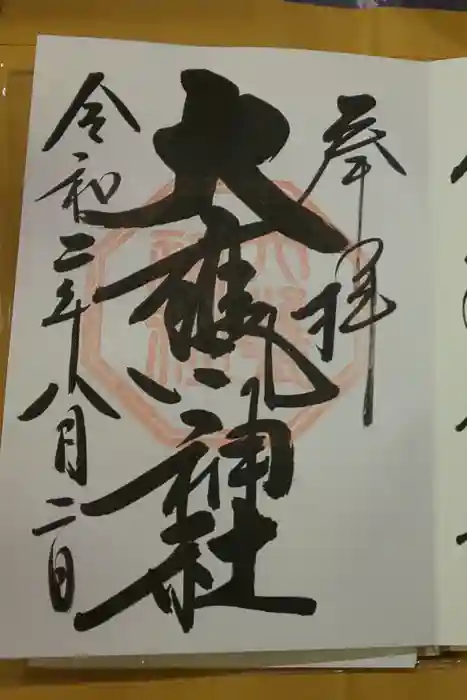 奉拝
大甕神社
令和二年八月二日